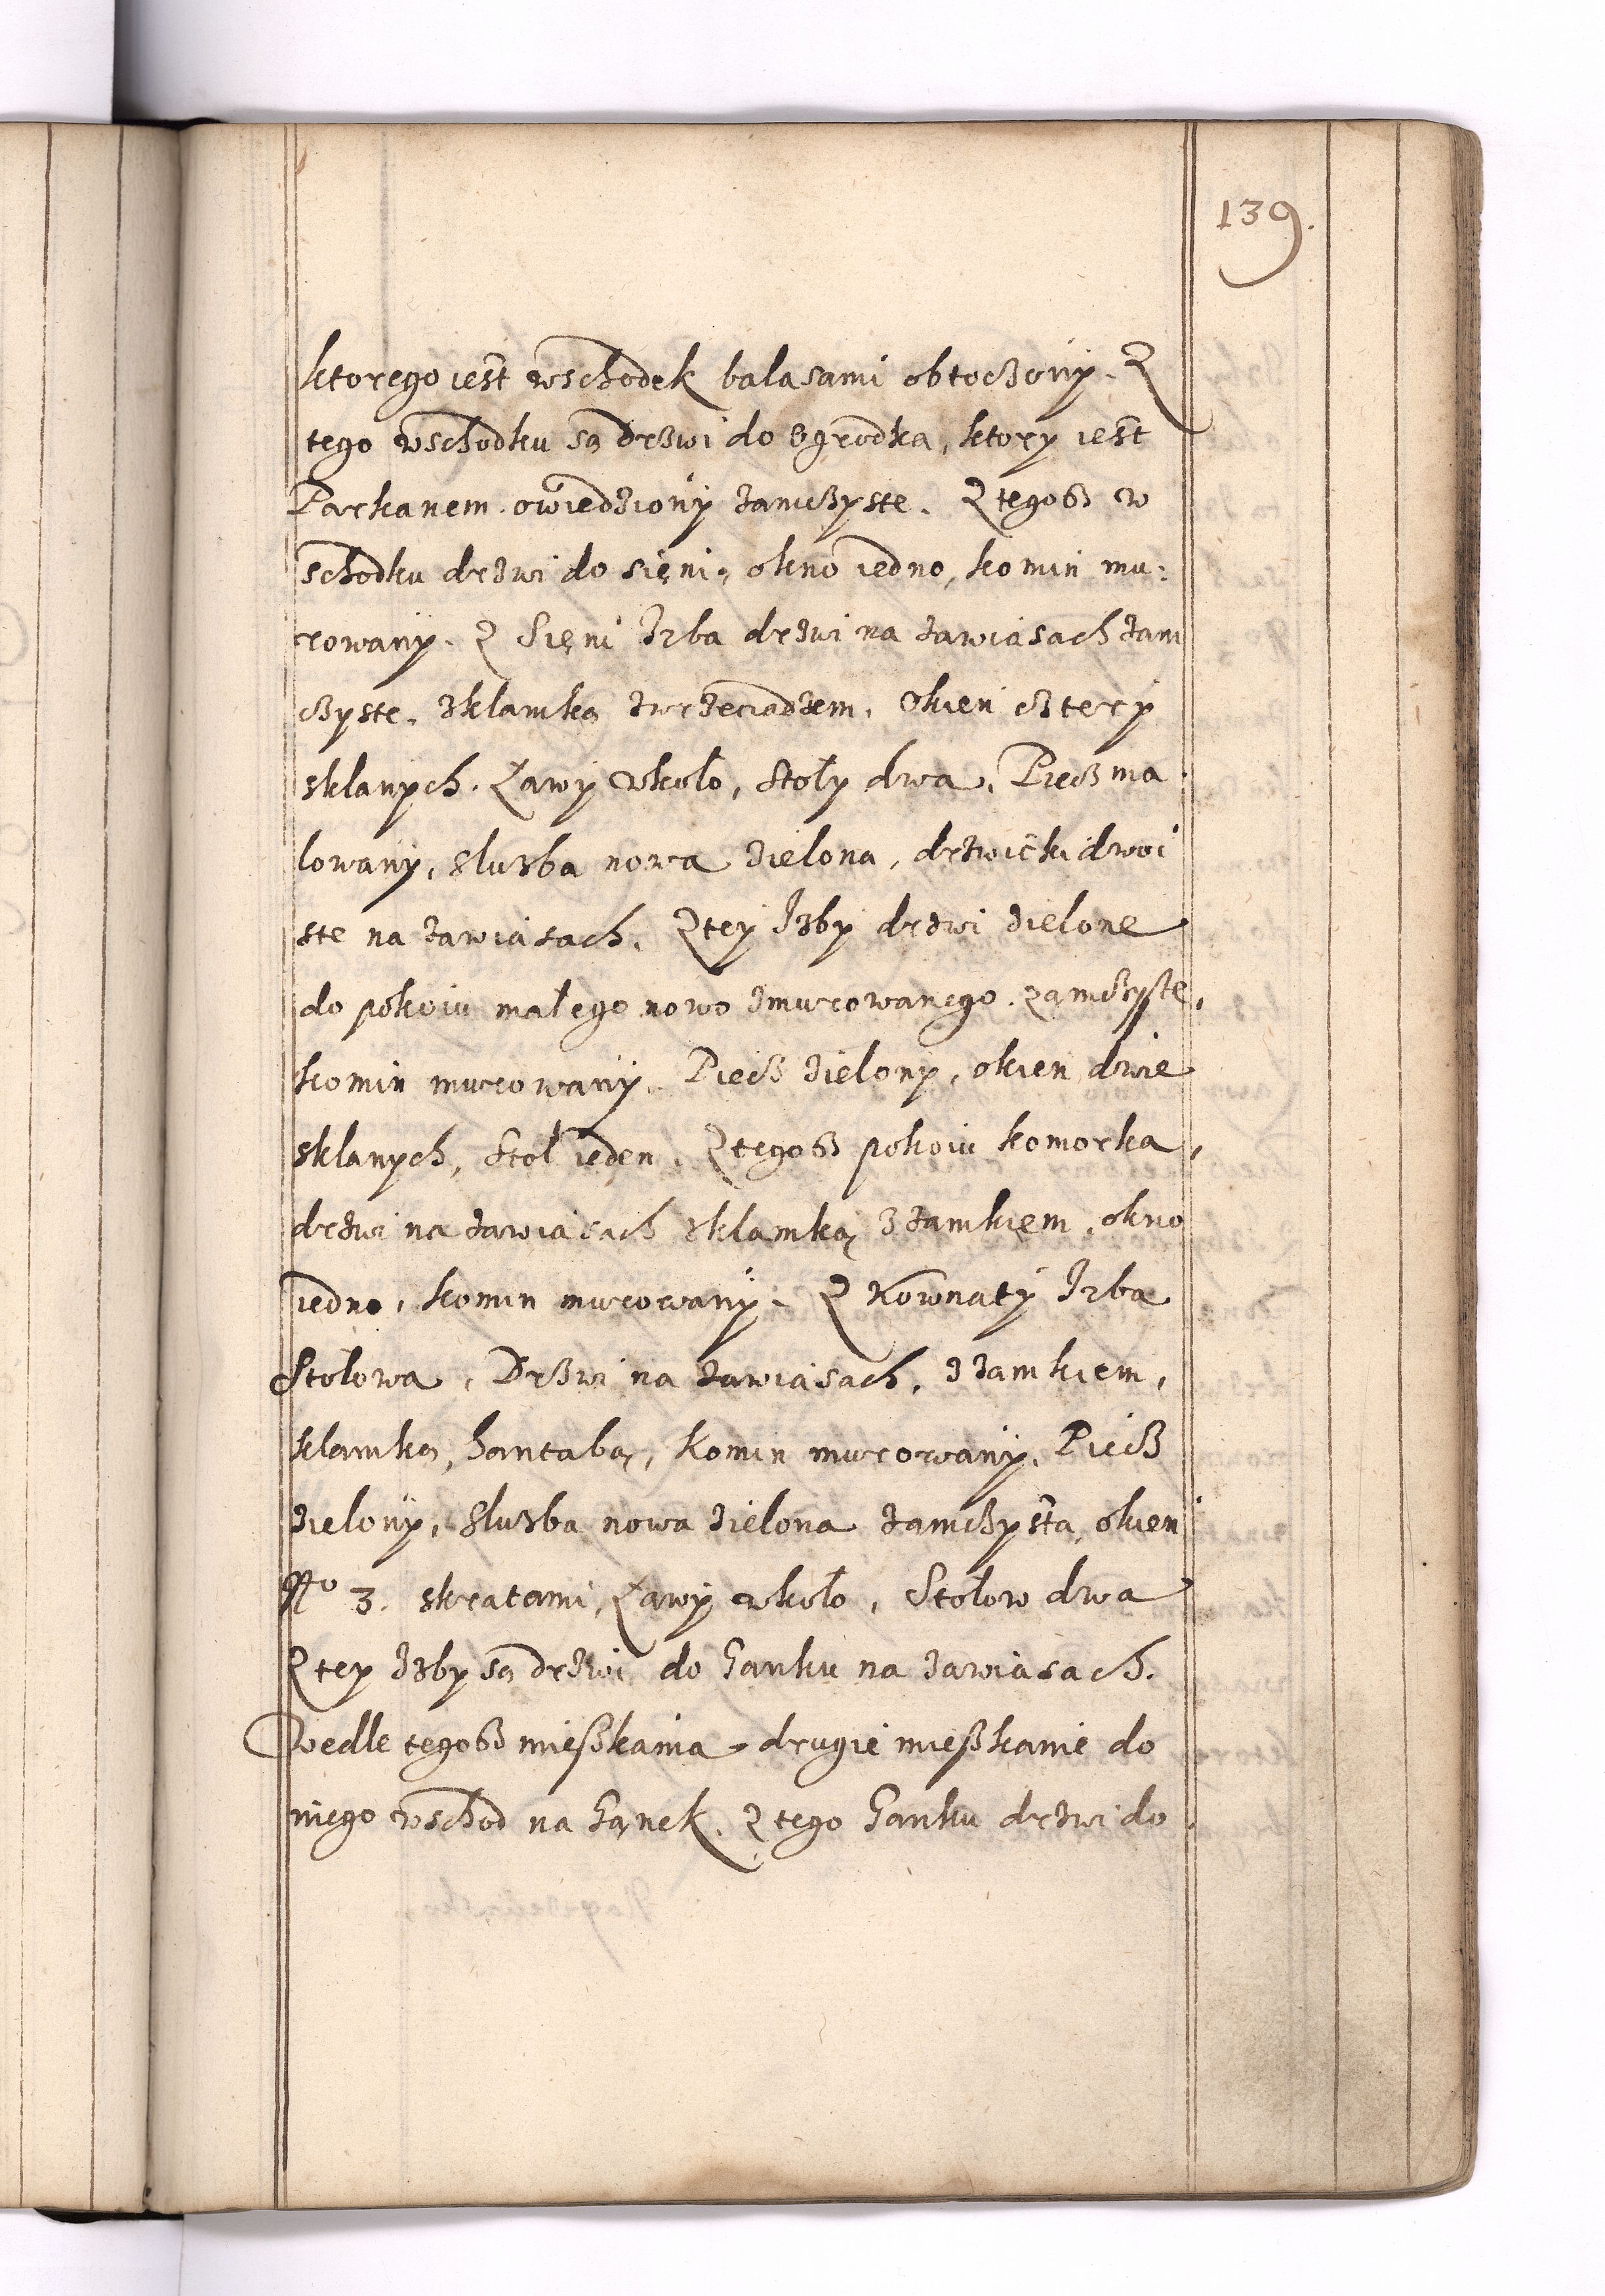 139.
ktorego iest wschodek balasami obtoczony. Z
tego wschodku są drzwi do ogrodka, ktory iest
Parkanem owiedziony zamczyste. Z tegosz w
schodku drzwi do sięni, okno iedno, komin mu:
rowany. Z Sięni Izba drzwi na zawiasach zam
czyste, zklamką zwrzeciądzem, Okien cztery
sklanych. Ławy wkoło, Stoły dwa, Piecz ma
lowany, Służba nowa zielona, drzwiczki dwoi
ste na zawiasach. Z tey Izby drzwi zielone
do pokoiu małego nowo zmurowanego zamczyste,
komin murowany. Piecz zielony, okien dwie
sklanych, Stoł ieden. Z tegosz pokoiu komorka,
drzwi na zawiasach zklamką z zamkiem, okno
iedno, komin murowany. Z Kownaty Izba
Stołowa, Drzwi na zawiasach, z zamkiem,
klamką, hantabą, Komin murowany, Piecz
zielony, Służba nowa zielona zamczysta, okien
No 3. skratami, Ławy wkoło, Stołow dwa
Z tey Izby są drzwi do Ganku na zawiasach.
Wedle tegosz mieszkania drugie mieszkanie do
niego wschod na Ganek. Z tego Ganku drzwi do